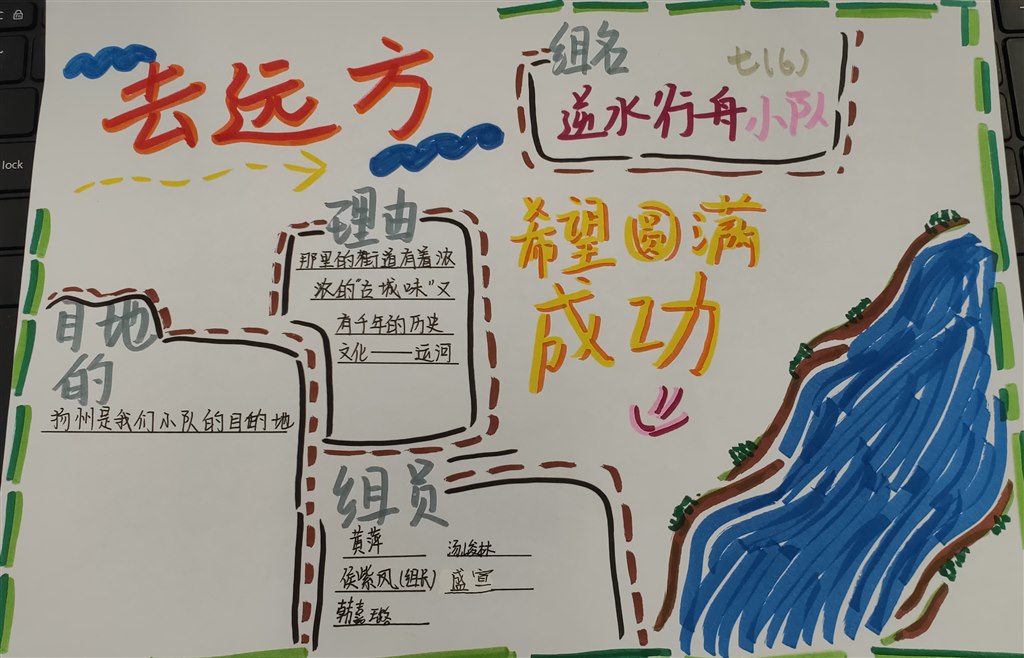 去远方
组名
七(6)
逆水行舟小队
理由
那里的街道有着浓
浓的"古城味"又
有千年的历史
文化——运河
希望圆满
成功
目地
的
扬州是我们小队的目的地
组员
黄萍 汤俊林
侯紫风(组长) 盛宣
韩嘉璐
lock